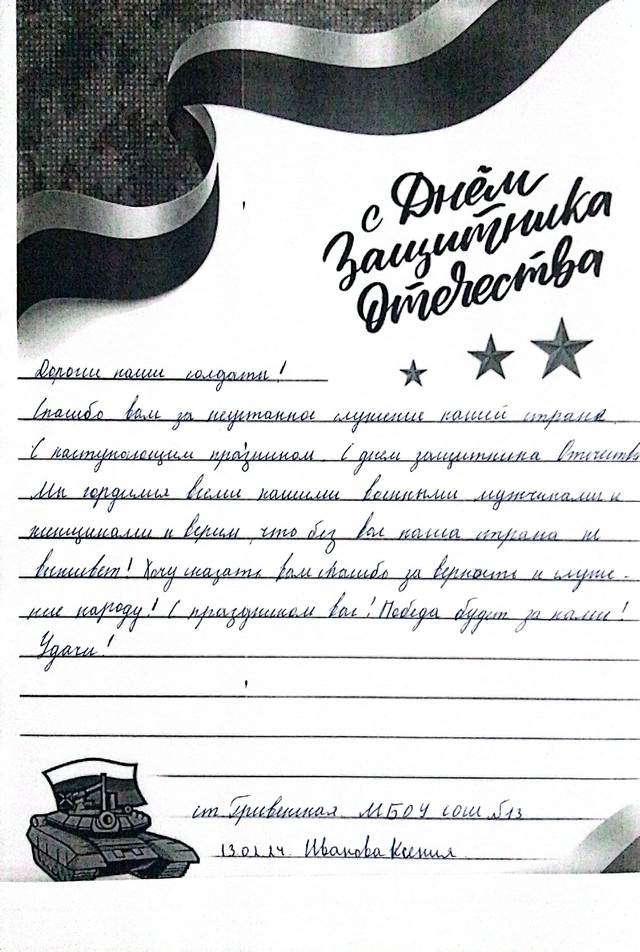 с Днём
Защитника
Отечества
Дороги наши солдаты!
Спасибо вам за неустанное служение нашей стране.
С наступающим праздником. С днем защитника Отечества
Мы гордимся всеми нашими военными мужчинами и
женщинами и верим, что без вас наша страна не
выживет! Хочу сказать вам спасибо за верность и служе-
ние народу! С праздником вас! Победа будет за нами!
Удачи!
ст. Гривенская МБОУ сош №13
13.02.24. Иванова Ксения